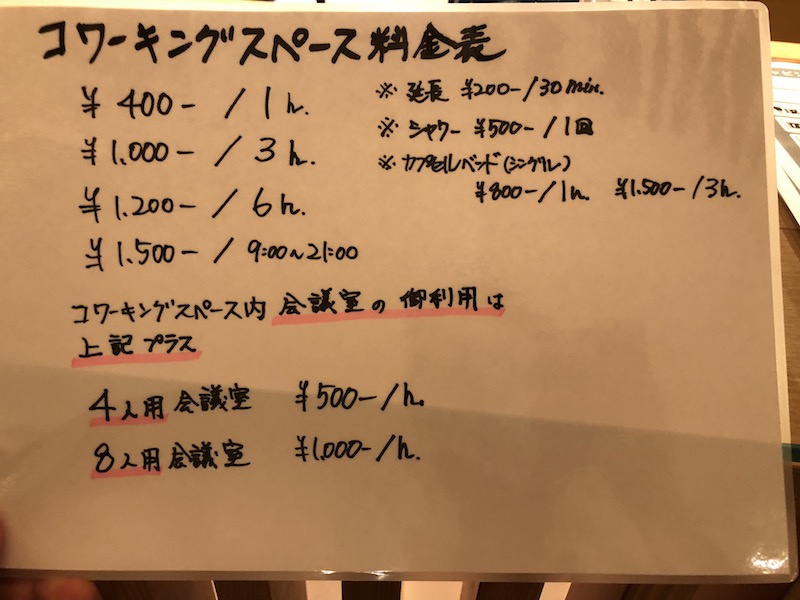 コワーキングスペース料金表
¥400- / 1h.
¥1.000- / 3h.
¥1.200- / 6h.
¥1.500- / 9:00~21:00
※ 延長 ¥200-/30min.
※ シャワー ¥500-/1回
※ カプセルベッド(シングル)
¥800-/1h. ¥1.500-/3h.
コワーキングスペース内 会議室の御利用は
上記プラス
4人用会議室 ¥500-/h.
8人用会議室 ¥1.000-/h.